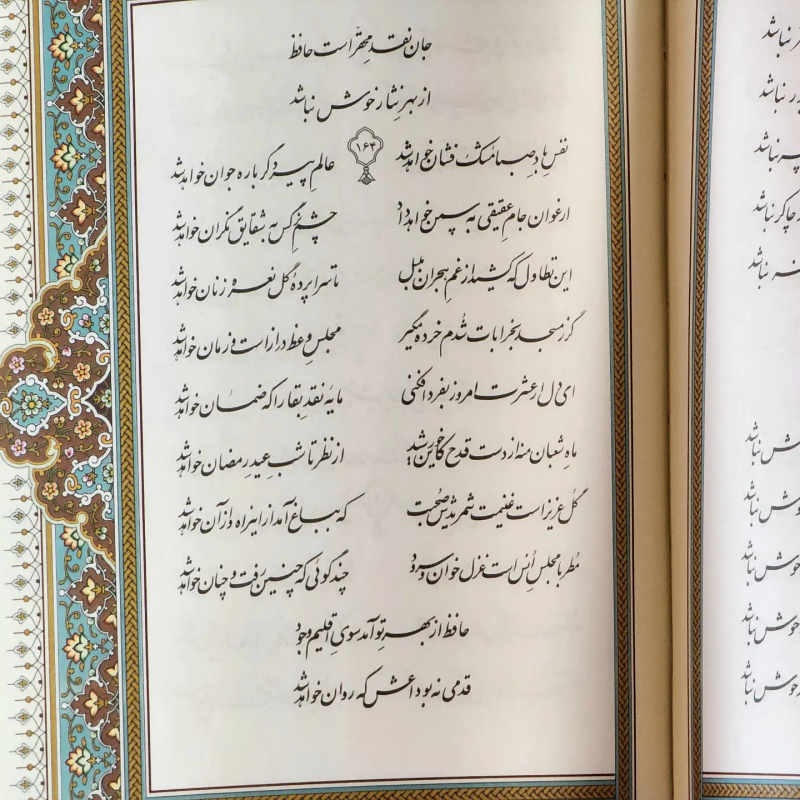 نباشد
نباشد
نباشد
چاکر نباشد
نباشد
نباشد
نباشد
خوش نباشد
خوش نباشد
خوش نباشد
جان نقد محقّر است حافظ
از بهر نثار خوش نباشد
۱۶۴
نفس باد صبا مشک فشان خواهد شد عالم پیر دگر باره جوان خواهد شد
ارغوان جام عقیقی به سمن خواهد داد چشم نرگس به شقایق نگران خواهد شد
این تطاول که کشید از غم هجران بلبل تا سراپردهٔ گل نعره زنان خواهد شد
گر ز مسجد بخرابات شدم خرده مگیر مجلس وعظ دراز است و زمان خواهد شد
ای دل ار عشرت امروز بفردا فکنی مایهٔ نقد بقا را که ضمان خواهد شد
ماه شعبان منه از دست قدح کاین خورشید از نظر تا شب عید رمضان خواهد شد
گل عزیز است غنیمت شمریدش صحبت که بباغ آمد از این راه و از آن خواهد شد
مطربا مجلس اُنس است غزل خوان و سرود چند گوئی که چنین رفت و چنان خواهد شد
حافظ از بهر تو آمد سوی اقلیم وجود
قدمی نه بوداعش که روان خواهد شد